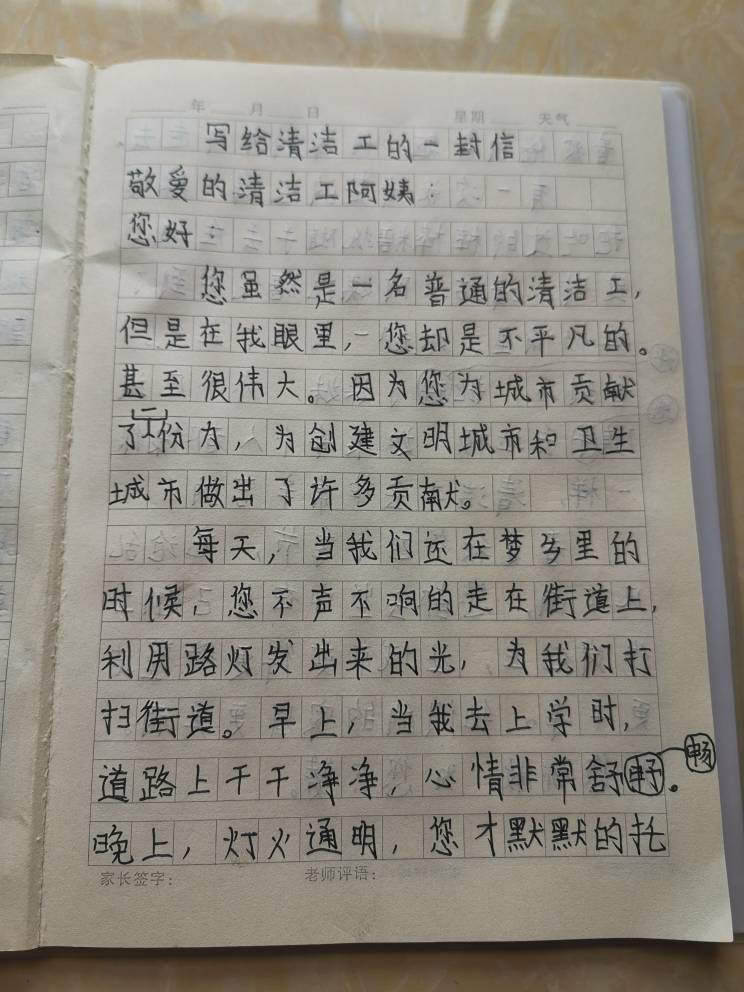 年 月 日 星期 天气
写给清洁工的一封信
敬爱的清洁工阿姨：
您好：
您虽然是一名普通的清洁工，
但是在我眼里，您却是不平凡的。
甚至很伟大。因为您为城市贡献
了一份力，为创建文明城市和卫生
城市做出了许多贡献。
每天，当我们还在梦乡里的
时候，您不声不响的走在街道上，
利用路灯发出来的光，为我们打
扫街道。早上，当我去上学时，
道路上干干净净，心情非常舒畅。
晚上，灯火通明，您才默默的托
家长签字： 老师评语：